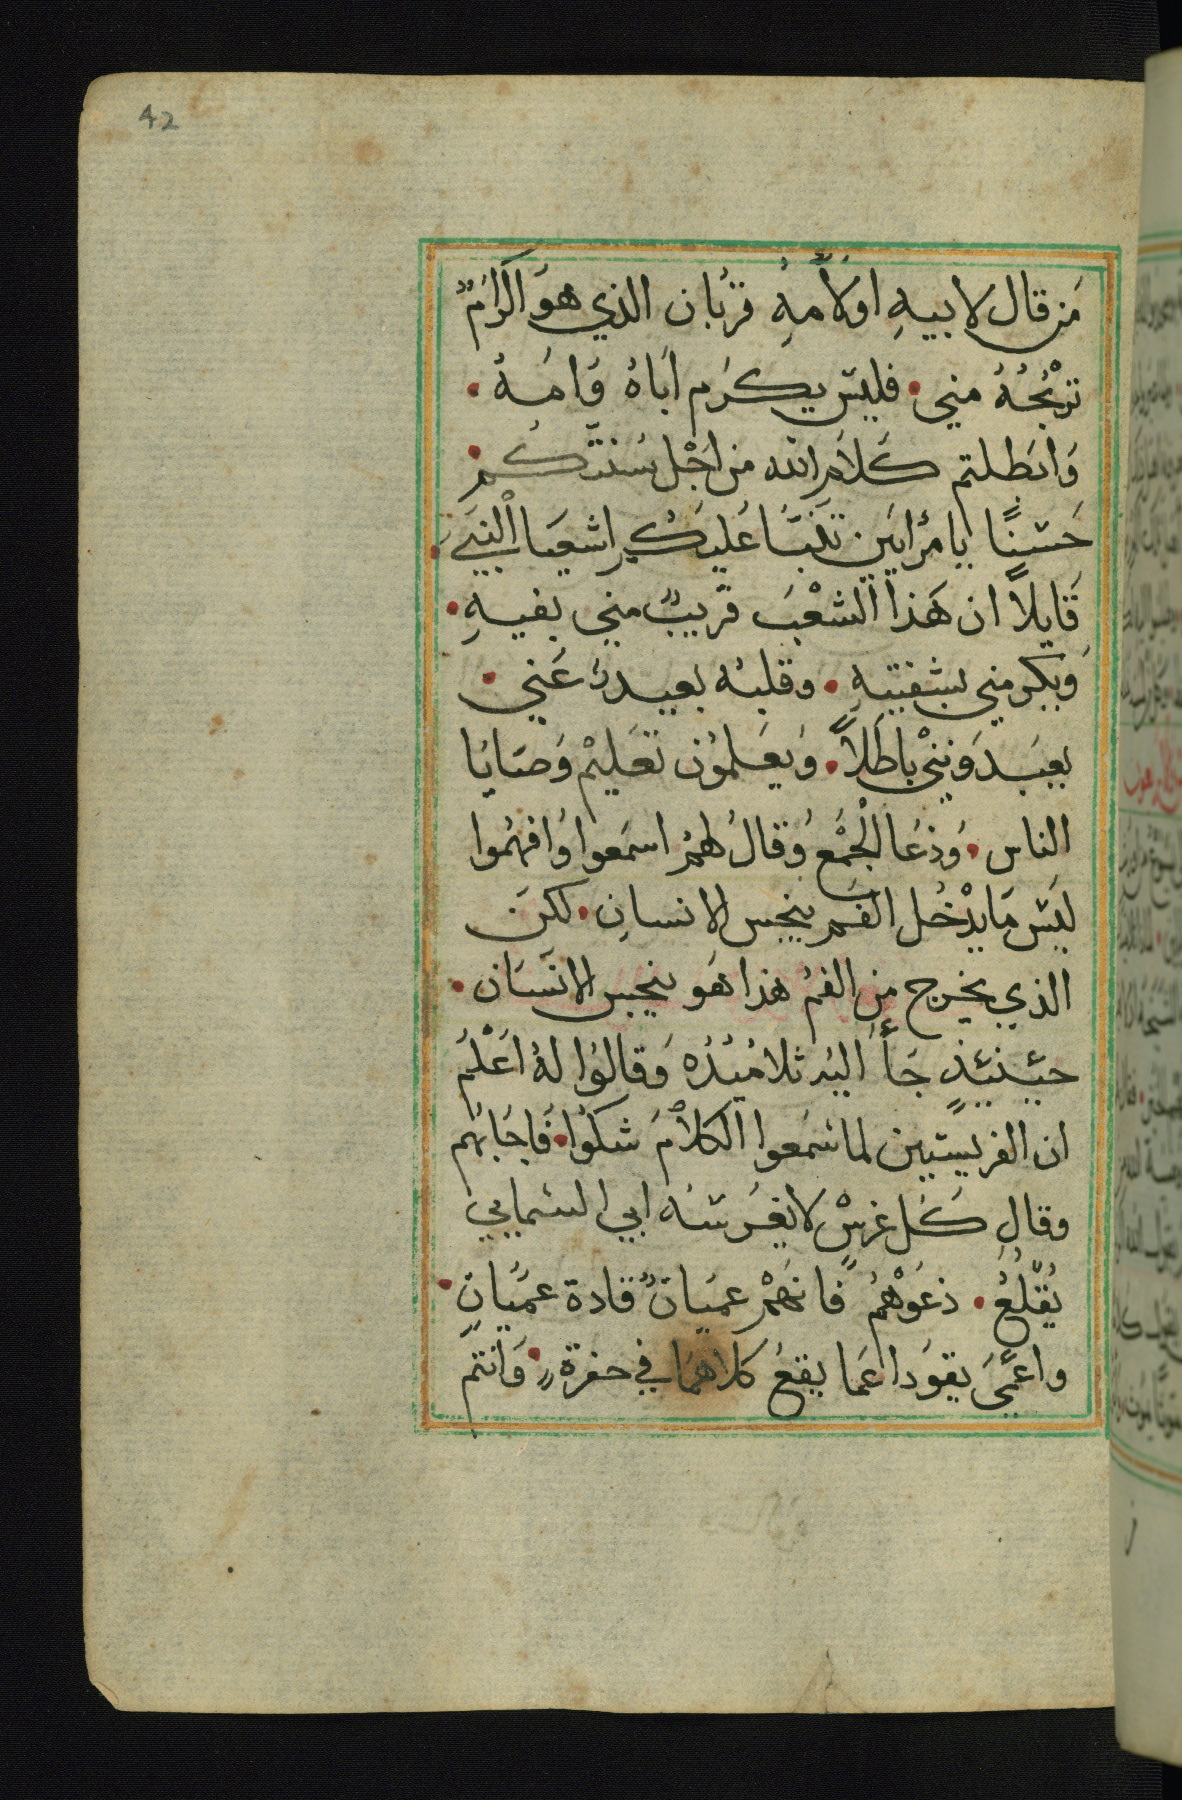 42
مَن قال لابيهِ اولاُمهِ قربَان الذي هوَ اكرامٌ
تربْحُهُ مني • فليسَ يكرَم اَبَاهُ وَامهُ •
وَابَطلتم كَلاَمَ الله من اَجْل سُنتّكُم •
حَسَنًا يا مُرايَين تَنَبَّا عَليكُم اشعيَا الْنبَي •
قَايلاً ان هَذا الشعْبَ قريبٌ مني بفيهِ •
وَيكرمني بشفتيهِ • وقلبُه بعيدٌ عَني •
يعبَدوَننيْ باطَلاً • وَيعَلمُون تعَليْم وَصَايَا
الناس • وَدَعَا الْجمْعَ وَقالَ لهمُ اسمَعوا وَافهمُوا
ليَسَ مَا يدْخُل الفَم ينجس الانسانِ • لكنَ
الذي يخرج من الفمُ هذا هَو ينجس الانسَان •
حيَنيئذٍ جَأَ اليْه تلامُيذُه وَقالوُا لهُ اعْلَمُ
ان الفريسَيين لما سَمعوا الكلاَمَ شكوُا • فَاجَابهُم
وقال كَل غرسْ لا يغرسَه ابي السَمايي
يُقّلعُ • دعَوْهُم فَانهَمْ عميَانٌ قادة عميَانِ •
واعمَىَ يقوَد اعَما يقعُ كلاهمَا في حفرة • وَانتم